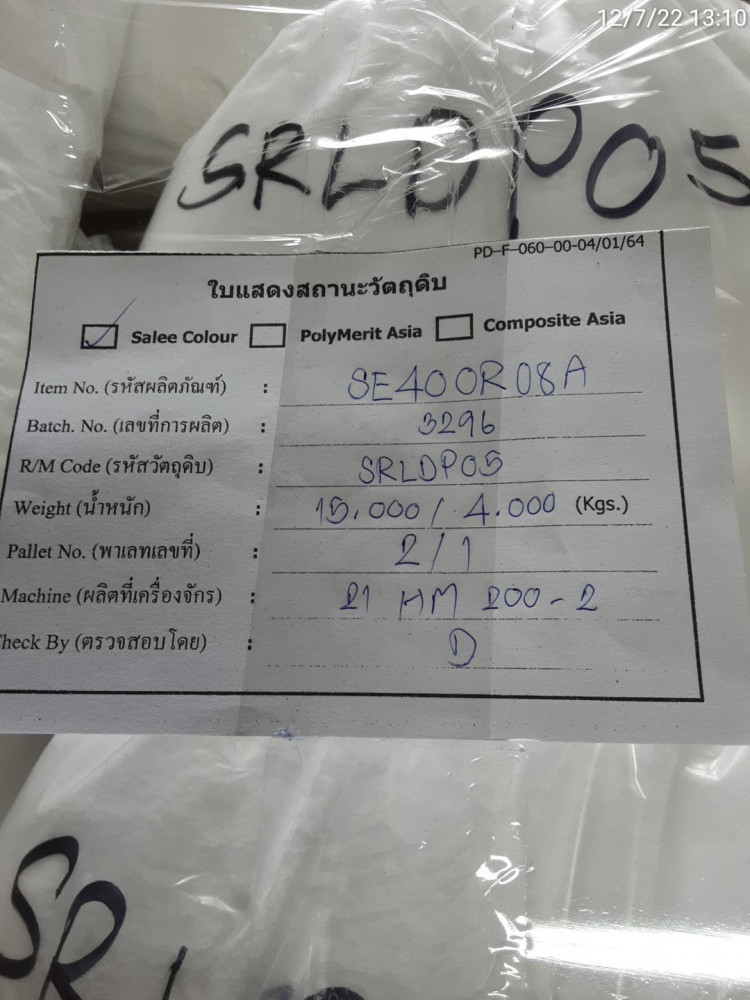 12/7/22 13:10
SRLDP05
PD-F-060-00-04/01/64
ใบแสดงสถานะวัตถุดิบ
Salee Colour PolyMerit Asia Composite Asia
Item No. (รหัสผลิตภัณฑ์) : SE400R08A
Batch. No. (เลขที่การผลิต) : 3296
R/M Code (รหัสวัตถุดิบ) : SRLDP05
Weight (น้ำหนัก) : 15.000 / 4.000 (Kgs.)
Pallet No. (พาเลทเลขที่) : 2/1
Machine (ผลิตที่เครื่องจักร) : 21 HM 200-2
heck By (ตรวจสอบโดย) : D
SRL